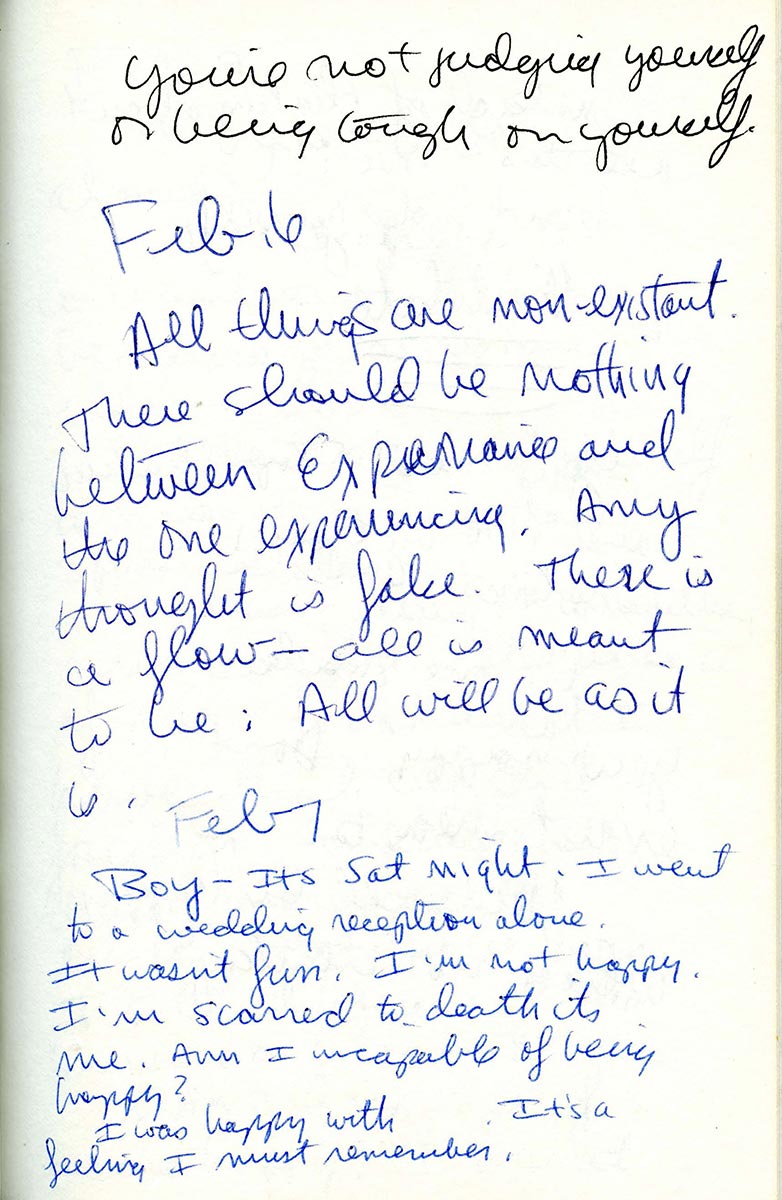 you're not judging yourself
or being tough on yourself.
Feb. 6
All things are non-existant.
There should be nothing
between Experiance and
the one experiencing. Any
thought is fake. There is
a flow — all is meant
to be; All will be as it
is.
Feb 7
Boy — Its Sat night. I went
to a wedding reception alone.
It wasn't fun. I'm not happy.
I'm scarred to death its
me. Am I incapable of being
happy?
I was happy with . It's a
feeling I must remember.